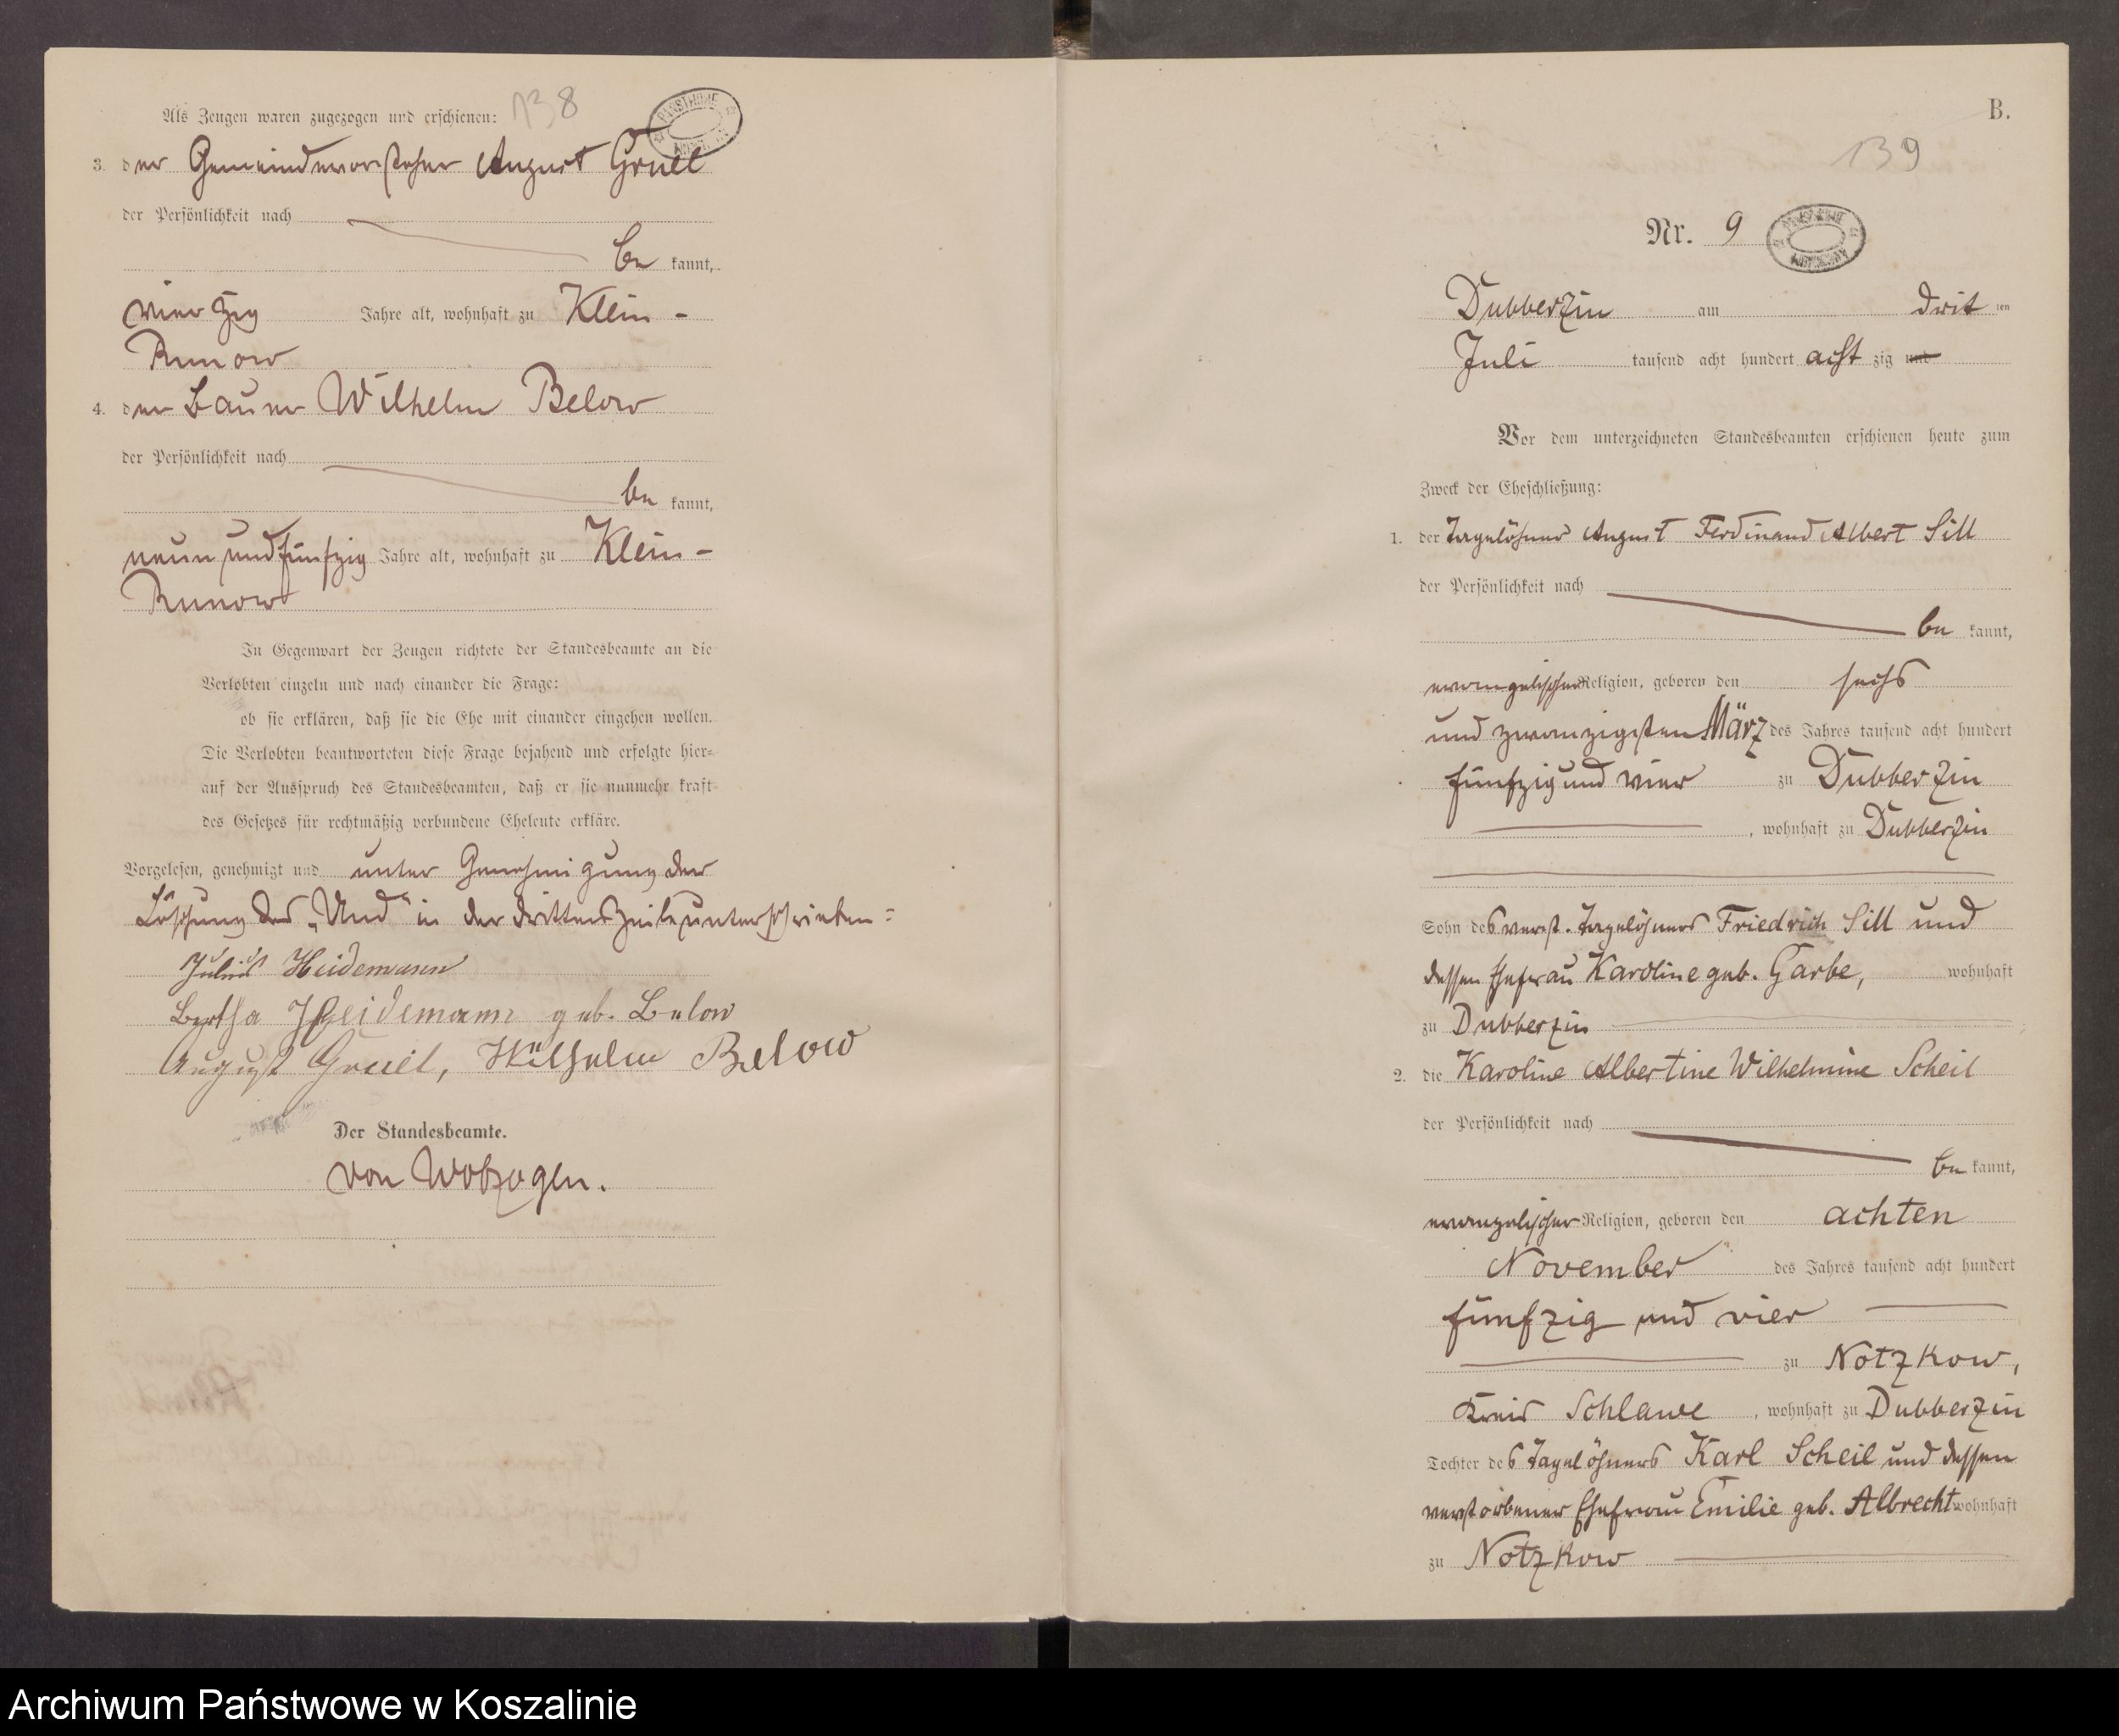 138
Als Zeugen waren zugezogen und erschienen:
3. der Gemeindevorsteher August Gruel
der Persönlichkeit nach
be kannt,
vierzig Jahre alt, wohnhaft zu Klein-
Runow
4. der Bauer Wilhelm Below
der Persönlichkeit nach
be kannt,
neun und fünfzig Jahre alt, wohnhaft zu Klein-
Runow
In Gegenwart der Zeugen richtete der Standesbeamte an die
Verlobten einzeln und nach einander die Frage:
ob sie erklären, daß sie die Ehe mit einander eingehen wollen.
Die Verlobten beantworteten diese Frage bejahend und erfolgte hier-
auf der Ausspruch des Standesbeamten, daß er sie nunmehr kraft
des Gesetzes für rechtmäßig verbundene Eheleute erkläre.
Vorgelesen, genehmigt und unter Genehmigung der
Löschung des „Und" in der dritten Zeile unterschrieben:
Julius Heidemann
Bertha Heidemann geb. Below
August Gruel, Wilhelm Below
Der Standesbeamte.
von
B.
139
Nr. 9
Dubberzin am drit ten
Juli tausend acht hundert acht zig und
Vor dem unterzeichneten Standesbeamten erschienen heute zum
Zweck der Eheschließung:
1. der Tagelöhner August Ferdinand Albert Sill
der Persönlichkeit nach
be kannt,
evangelischer Religion, geboren den sechs
und zwanzigsten März des Jahres tausend acht hundert
fünfzig und vier zu Dubberzin
, wohnhaft zu Dubberzin
Sohn des verst. Tagelöhners Friedrich Sill und
dessen Ehefrau Karoline geb. Garbe, wohnhaft
zu Dubberzin
2. die Karoline Albertine Wilhelmine Scheil
der Persönlichkeit nach
be kannt,
evangelischer Religion, geboren den achten
November des Jahres tausend acht hundert
fünfzig und vier
zu Notzkow,
Kreis Schlawe, wohnhaft zu Dubberzin
Tochter des Tagelöhners Karl Scheil und dessen
verstorbener Ehefrau Emilie geb. Albrecht wohnhaft
zu Notzkow
Archiwum Państwowe w Koszalinie